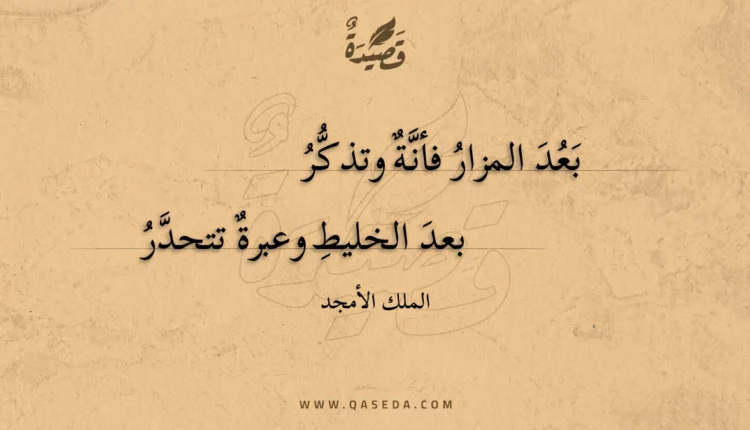 قَصِيْدَةٌ
بَعُدَ المزارُ فأنَّةٌ وتذكُّرُ
بعدَ الخليطِ وعبرةٌ تتحدَّرُ
الملك الأمجد
WWW.QASEDA.COM